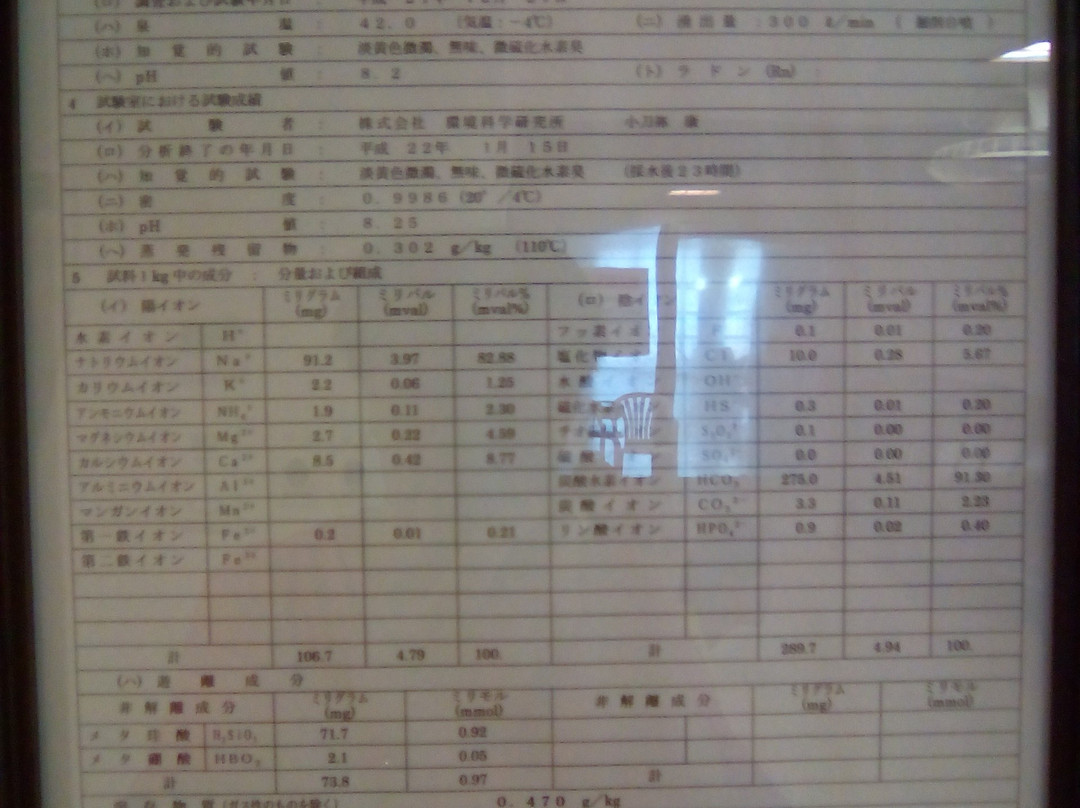 (ハ) 泉 温 : 42.0 (気温:-4℃) (ニ) 湧出量 : 300 ℓ/min (掘削自噴)
(ホ) 知覚的試験 : 淡黄色微濁、無味、微硫化水素臭
(ヘ) pH 値 : 8.2 (ト) ラドン (Rn)
4 試験室における試験成績
(イ) 試験者 : 株式会社 環境科学研究所
(ロ) 分析終了の年月日 : 平成 22年 1月 15日
(ハ) 知覚的試験 : 淡黄色微濁、無味、微硫化水素臭 (採水後23時間)
(ニ) 密度 : 0.9986 (20°/4℃)
(ホ) pH 値 : 8.25
(ヘ) 蒸発残留物 : 0.302 g/kg (110℃)
5 試料1kg中の成分 : 分量および組成
(イ) 陽イオン ミリグラム (mg) ミリバル (mval) ミリバル% (mval%) (ロ) 陰イオン ミリグラム (mg) ミリバル (mval) ミリバル% (mval%)
水素イオン H⁺ フッ素イオ F 0.1 0.01 0.20
ナトリウムイオン Na⁺ 91.2 3.97 82.88 塩化物イオ Cl 10.0 0.28 5.67
カリウムイオン K⁺ 2.2 0.06 1.25 水酸イオン OH⁻
アンモニウムイオン NH₄⁺ 1.9 0.11 2.30 硫化水 HS 0.3 0.01 0.20
マグネシウムイオン Mg²⁺ 2.7 0.22 4.59 チオ S₂O₃²⁻ 0.1 0.00 0.00
カルシウムイオン Ca²⁺ 8.5 0.42 8.77 硫酸 SO₄²⁻ 0.0 0.00 0.00
アルミニウムイオン Al³⁺ 炭酸水素イオン HCO₃⁻ 275.0 4.51 91.30
マンガンイオン Mn²⁺ 炭酸イオン CO₃²⁻ 3.3 0.11 2.23
第一鉄イオン Fe²⁺ 0.2 0.01 0.21 リン酸イオン HPO₄²⁻ 0.9 0.02 0.40
第二鉄イオン Fe³⁺
計 106.7 4.79 100. 計 289.7 4.94 100.
(ハ) 遊離成分
非解離成分 ミリグラム (mg) ミリモル (mmol) 非解離成分 ミリグラム (mg) ミリモル (mmol)
メタ珪酸 H₂SiO₃ 71.7 0.92
メタ硼酸 HBO₂ 2.1 0.05
計 73.8 0.97 計
溶存物質(ガス性のものを除く) 0.470 g/kg